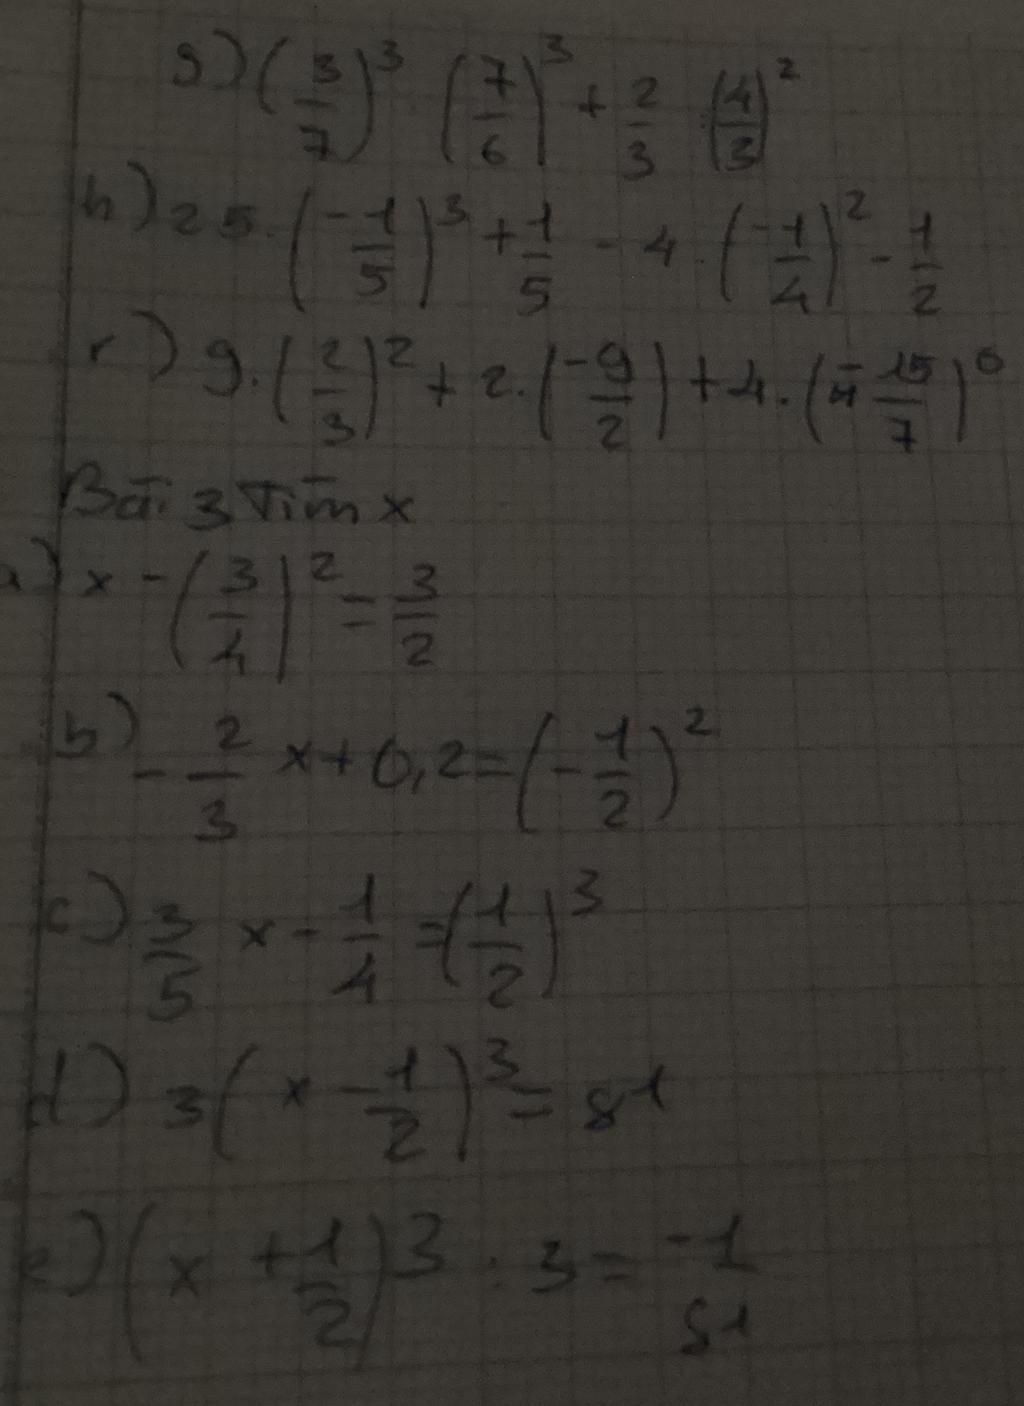 g) (3/7)^3 (7/6)^3 + 2/3 : (4/3)^2
h) 25. (-1/5)^3 + 1/5 - 4. (-1/4)^2 - 1/2
r) 9. (2/3)^2 + 2. (-9/2) + 4. (-15/7)^0
Bài 3 Tìm x
a) x - (3/4)^2 = 3/2
b) - 2/3 x + 0,2 = (- 1/2)^2
c) 3/5 x - 1/4 = (1/2)^3
d) 3 (x - 1/2)^3 = 81
e) (x + 1/2)^3 : 3 = -1/81